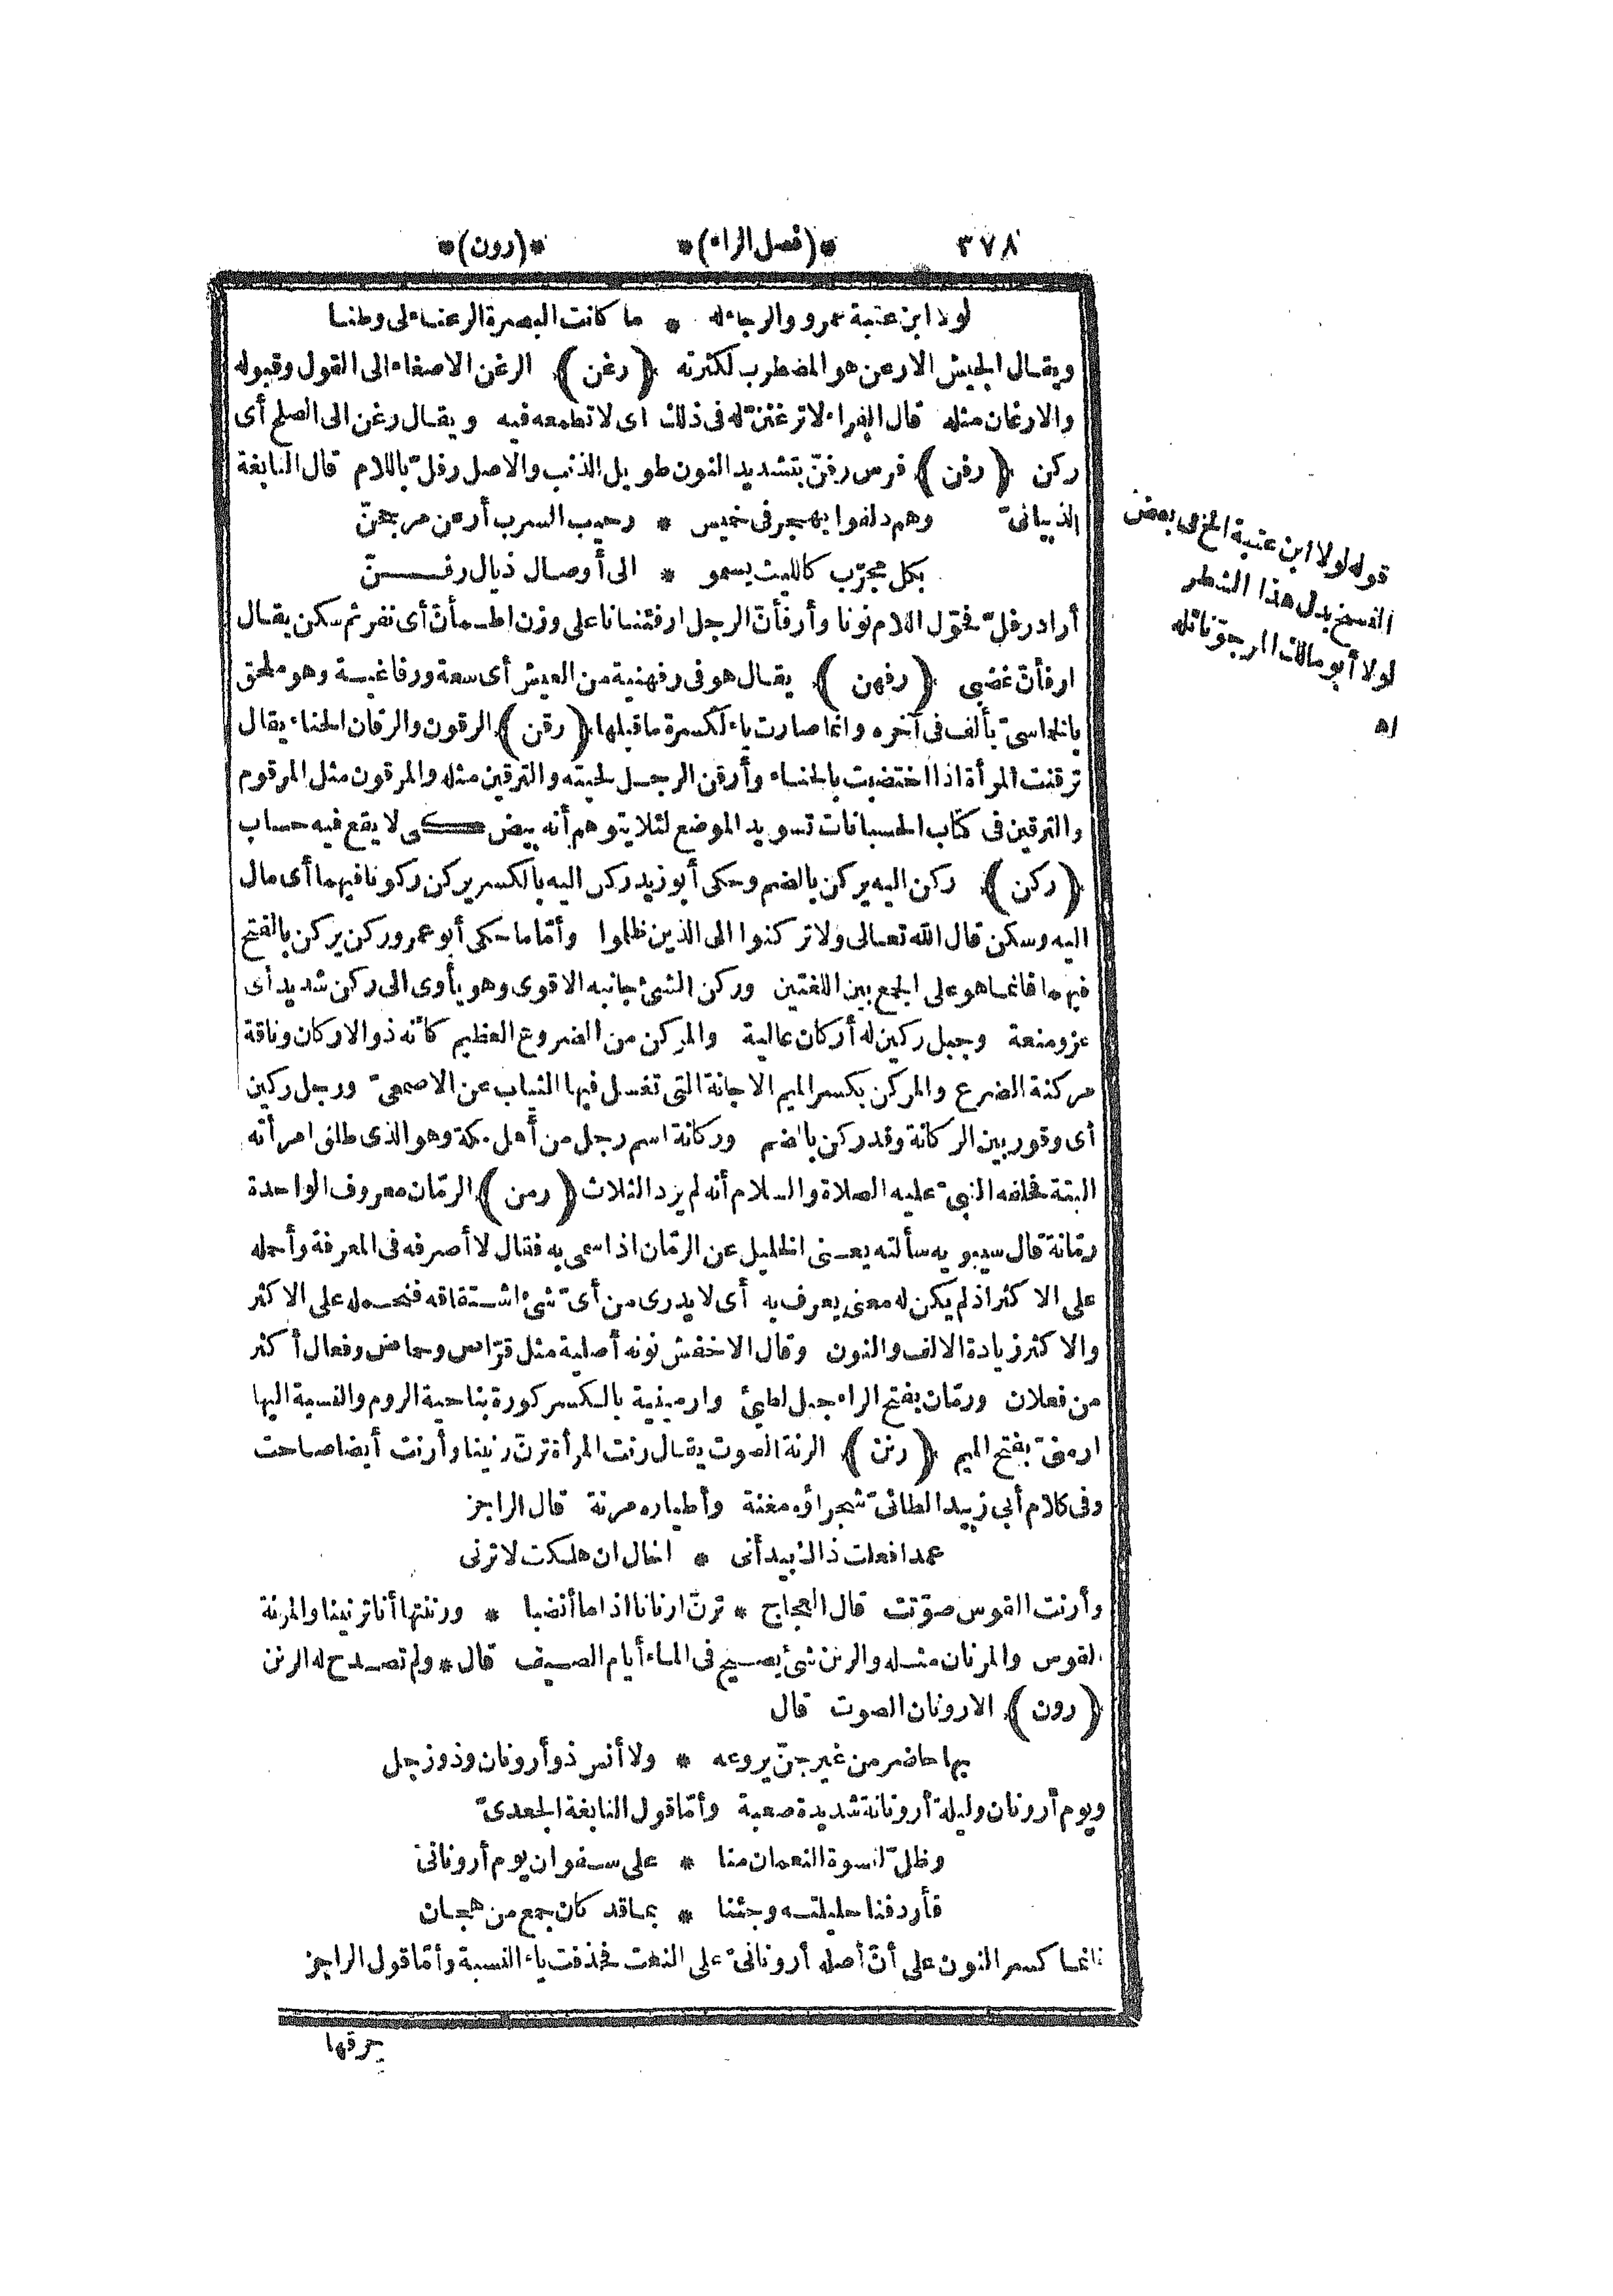 ٣٧٨ *(فصل الراء)* *(رون)*
لولا ابن عتبة عمرو والرجاء له * ما كانت البصرة الرعناء لى وطنا
ويقال الجيش الارعن هو المضطرب لكثرته (رغن) الرغن الاصغاء الى القول وقبوله
والارغان مثله قال الفراء لا ترغننّ له فى ذلك اى لا تطمعه فيه ويقال رغن الى الصلح أى
ركن (رفن) فرس رفنّ بتشديد النون طويل الذنب والاصل رفلّ باللام قال النابغة
الذبيانىّ وهم دلفوا بهجر فى خميس * رحيب السرب أرعن مرجحنّ
بكل مجرّب كالليث يسمو * الى أوصال ذيال رفنّ
أراد رفلّ فحوّل اللام نونا وأرفأنّ الرجل ارفئنانا على وزن اطمأنّ أى نفر ثم سكن يقال
ارفأنّ غضبى (رفهن) يقال هو فى رفهنية من العيش أى سعة ورفاغية وهو ملحق
بالخماسىّ بألف فى آخره وانما صارت ياء لكسرة ما قبلها (رقن) الرقون والرقان الحناء يقال
ترقنت المرأة اذا اختضبت بالحناء وأرقن الرجل لحيته والترقين مثله والمرقون مثل المرقوم
والترقين فى كتاب الحسبانات تسويد الموضع لئلا يتوهم أنه بيض كى لا يقع فيه حساب
(ركن) ركن اليه يركن بالضم وحكى أبو زيد ركن اليه بالكسر يركن ركونا فيهما أى مال
اليه وسكن قال الله تعالى ولا تركنوا الى الذين ظلموا وأمّا ما حكى أبو عمرو ركن يركن بالفتح
فيهما فانما هو على الجمع بين اللغتين وركن الشئ جانبه الاقوى وهو يأوى الى ركن شديد أى
عز ومنعة وجبل ركين له أركان عالية والمركن من الضروع العظيم كأنه ذو الاركان وناقة
مركنة الضرع والمركن بكسر الميم الاجانة التى تغسل فيها الثياب عن الاصمعىّ ورجل ركين
أى وقور بين الركانة وقد ركن بالضم وركانة اسم رجل من أهل مكة وهو الذى طلق امرأته
البتة فحلفه النبىّ عليه الصلاة والسلام أنه لم يرد الثلاث (رمن) الرمّان معروف الواحدة
رمّانة قال سيبويه سألته يعنى الخليل عن الرمّان اذا سمى به فقال لا أصرفه فى المعرفة وأحمله
على الاكثر اذ لم يكن له معنى يعرف به أى لا يدرى من أىّ شئ اشتقاقه فنحمله على الاكثر
والاكثر زيادة الالف والنون وقال الاخفش نونه أصلية مثل قرّاص وحماض وفعال أكثر
من فعلان ورمّان بفتح الراء جبل لطيئ وارمينية بالكسر كورة بناحية الروم والنسبة اليها
ارمنىّ بفتح الميم (رنن) الرنة الصوت يقال رنت المرأة ترنّ رنينا وأرنت أيضا صاحت
وفى كلام أبى زبيد الطائىّ شجراؤه مغنة وأطياره مرنة قال الراجز
عمدا فعلت ذاك بيد أنى * اخال ان هلكت لا ترنى
وأرنت القوس صوّتت قال العجاج * ترنّ ارنانا اذا ما أنضبا * ورننتها أنا ترنينا والمرنة
القوس والمرنان مثله والرنن شئ يصيح فى الماء أيام الصيف قال * ولم تصدح له الرنن
(رون) الارونان الصوت قال
بها حاضر من غير جنّ يروعه * ولا أنس ذو أرونان وذو زجل
ويوم أرونان وليلة أرونانة شديدة صعبة وأمّا قول النابغة الجعدىّ
وظلّ لنسوة النعمان منا * على سفوان يوم أرونانى
فأردفنا حليلته وجئنا * بما قد كان جمع من هجان
فانما كسر النون على أنّ أصله أرونانىّ على النعت فحذفت ياء النسبة وأمّا قول الراجز
حرقها
قوله لولا ابن عتبة الخ فى بعض
النسخ بدل هذا الشطر
لولا أبو مالك المرجوّ نائله
اه